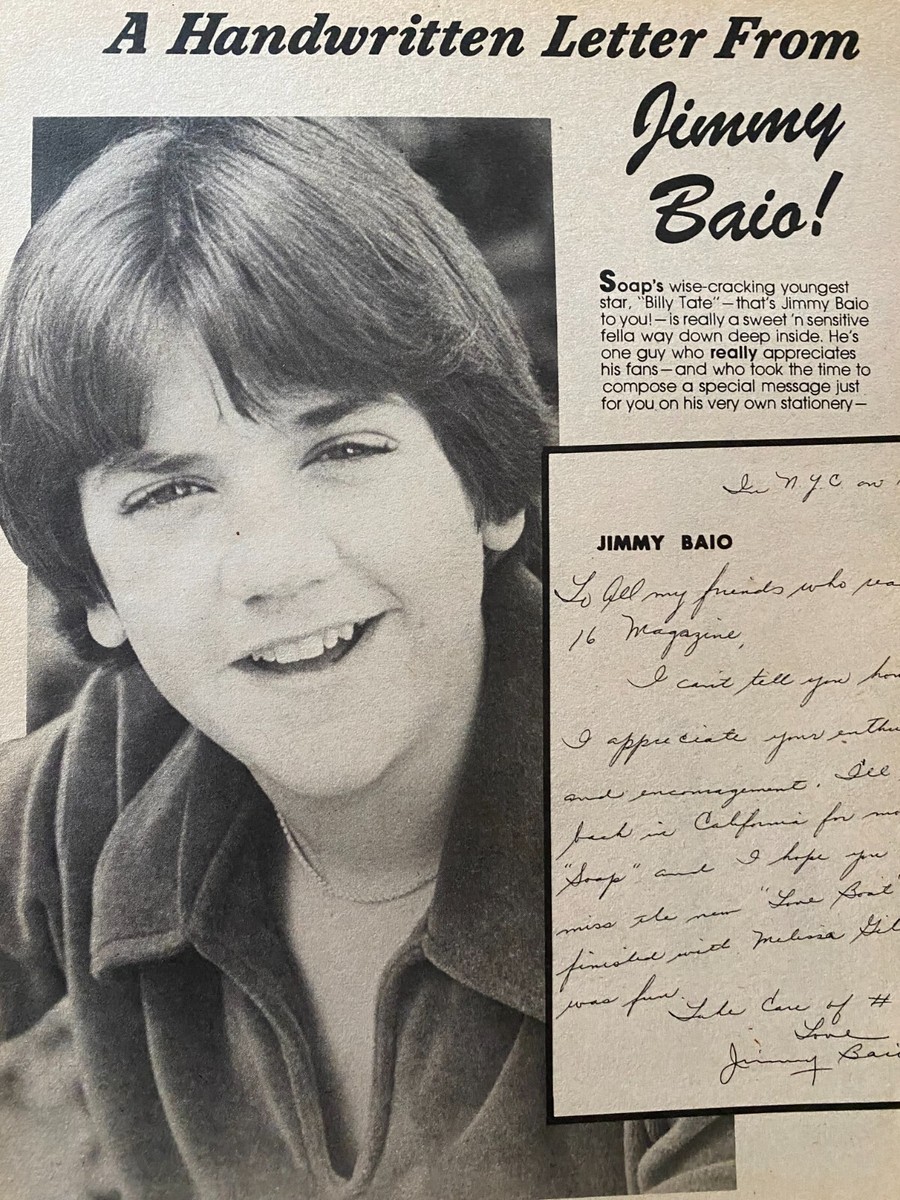 A Handwritten Letter From
Jimmy
Baio!
Soap's wise-cracking youngest
star, "Billy Tate"—that's Jimmy Baio
to you!—is really a sweet 'n sensitive
fella way down deep inside. He's
one guy who really appreciates
his fans—and who took the time to
compose a special message just
for you on his very own stationery—
In N.Y.C on
JIMMY BAIO
To All my friends who rea
16 Magazine,
I can't tell you how
I appreciate your enthu
and encouragement. I'll
back in California for mo
"Soap" and I hope you
miss the new "Love Boat"
finished with Melissa Gil
was fun.
Take Care of #
Love
Jimmy Baio